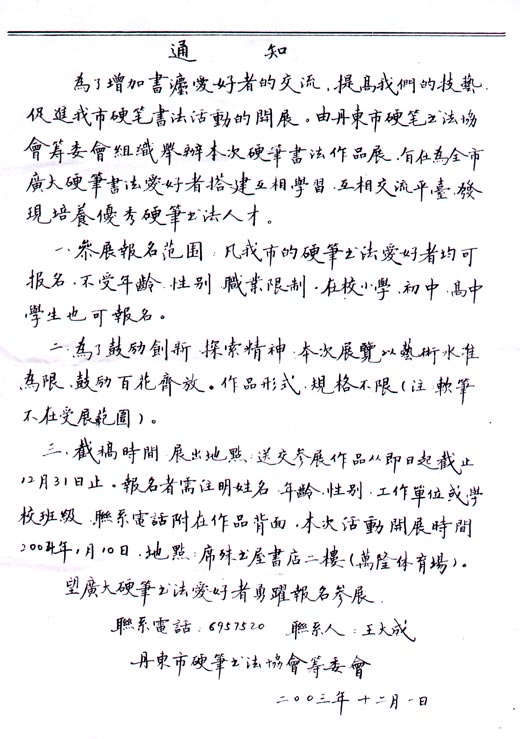 通 知
為了增加書灋愛好者的交流，提高我們的技藝，
促進我市硬笔書法活動的開展。由丹東市硬笔书法協
會筹委會組織舉辦本次硬筆書法作品展，旨在為全市
廣大硬筆書法愛好者搭建互相學習、互相交流平臺，發
現培養優秀硬筆书法人才。
一、叅展報名范围：凡我市的硬筆书法愛好者均可
报名，不受年齡、性别、職業限制，在校小學、初中、高中
學生也可報名。
二、為了鼓励創新、探索精神，本次展覽以藝術水准
為限，鼓励百花齊放。作品形式、規格不限（注：軟筆
不在受展範圍）。
三、截稿時間、展出地點：送交參展作品从即日起截止
12月31日止。報名者需注明姓名、年齡、性别、工作單位或學
校班級、聯系電話附在作品背面，本次活動開展時間
2004年1月10日，地點：席殊书屋書店二樓（萬隆体育場）。
望廣大硬筆书法愛好者勇躍報名参展。
聯系電話：6957520 聯系人：王大成
丹東市硬筆书法協會筹委會
二00三年十二月一日